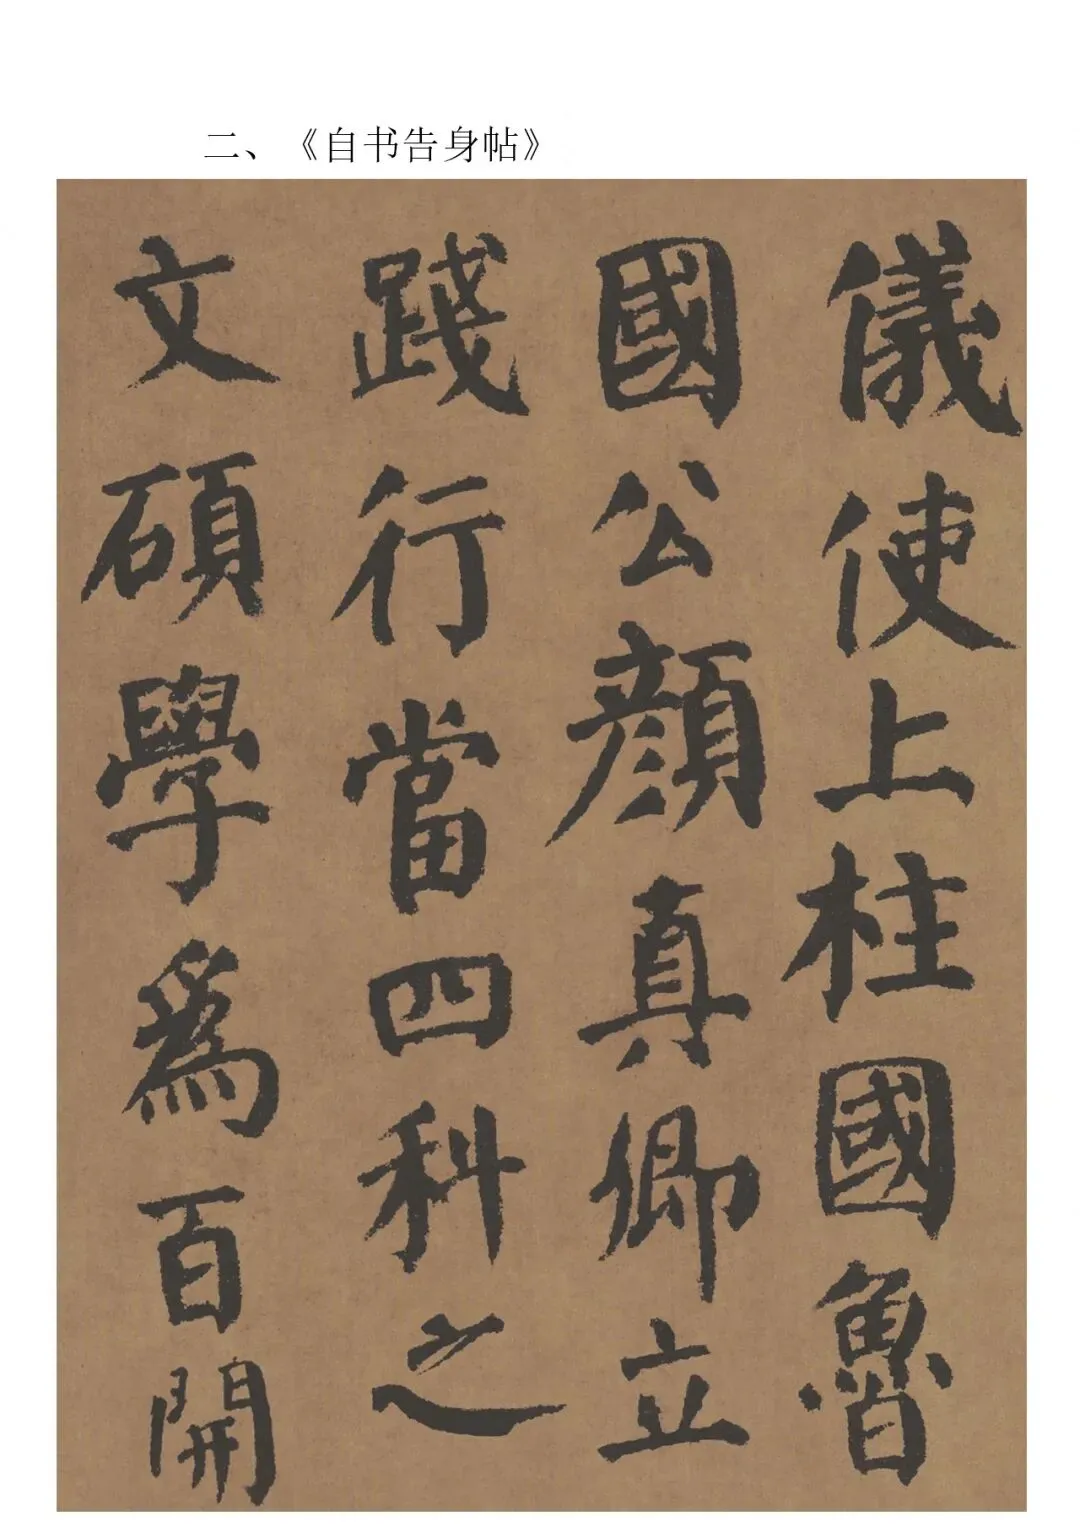 二、《自书告身帖》
儀使上柱國魯
國公顔真卿立
踐行當四科之
文碩學爲百開